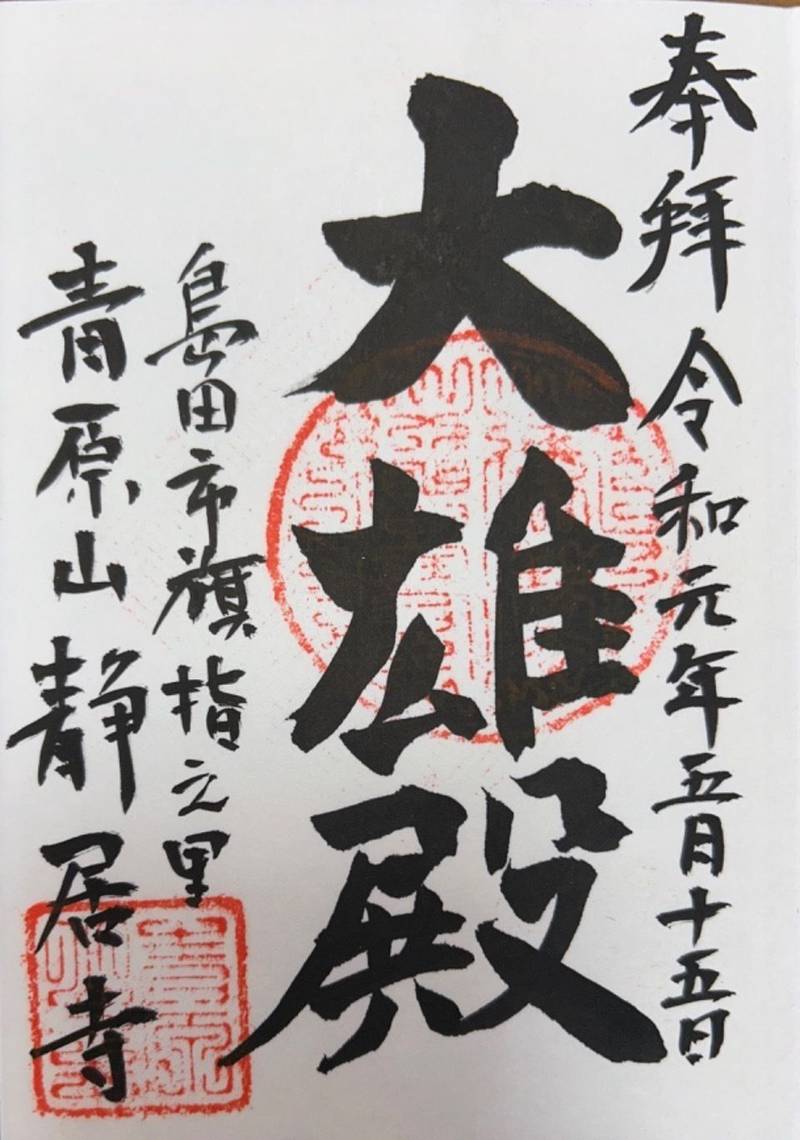 奉拜 令和元年五月十五日
大雄殿
島田市旗指之里
青原山 静居寺